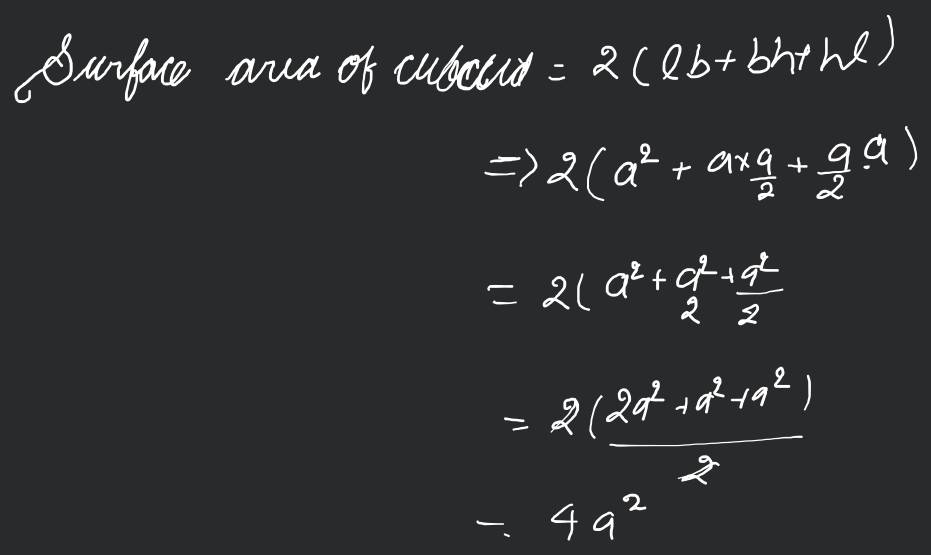 Surface area of cuboid = 2(lb+bh+hl)
=> 2(a² + a×a/2 + a/2.a)
= 2(a²+a²/2+a²/2
= 2(2a²+a²+a²)/2
= 4a²